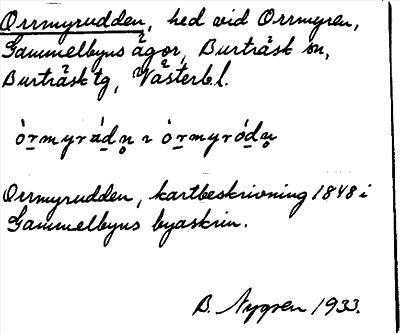 Orrmyrudden, hed vid Orrmyren,
Gammelbyns ägor, Burträsk sn,
Burträsk tg, Västerb.l.
òr̲myrád̲n̥ ɿ òr̲myród̲n̥
Orrmyrudden, kartbeskrivning 1848 i
Gammelbyns byaskrin.
B. Nygren 1933.